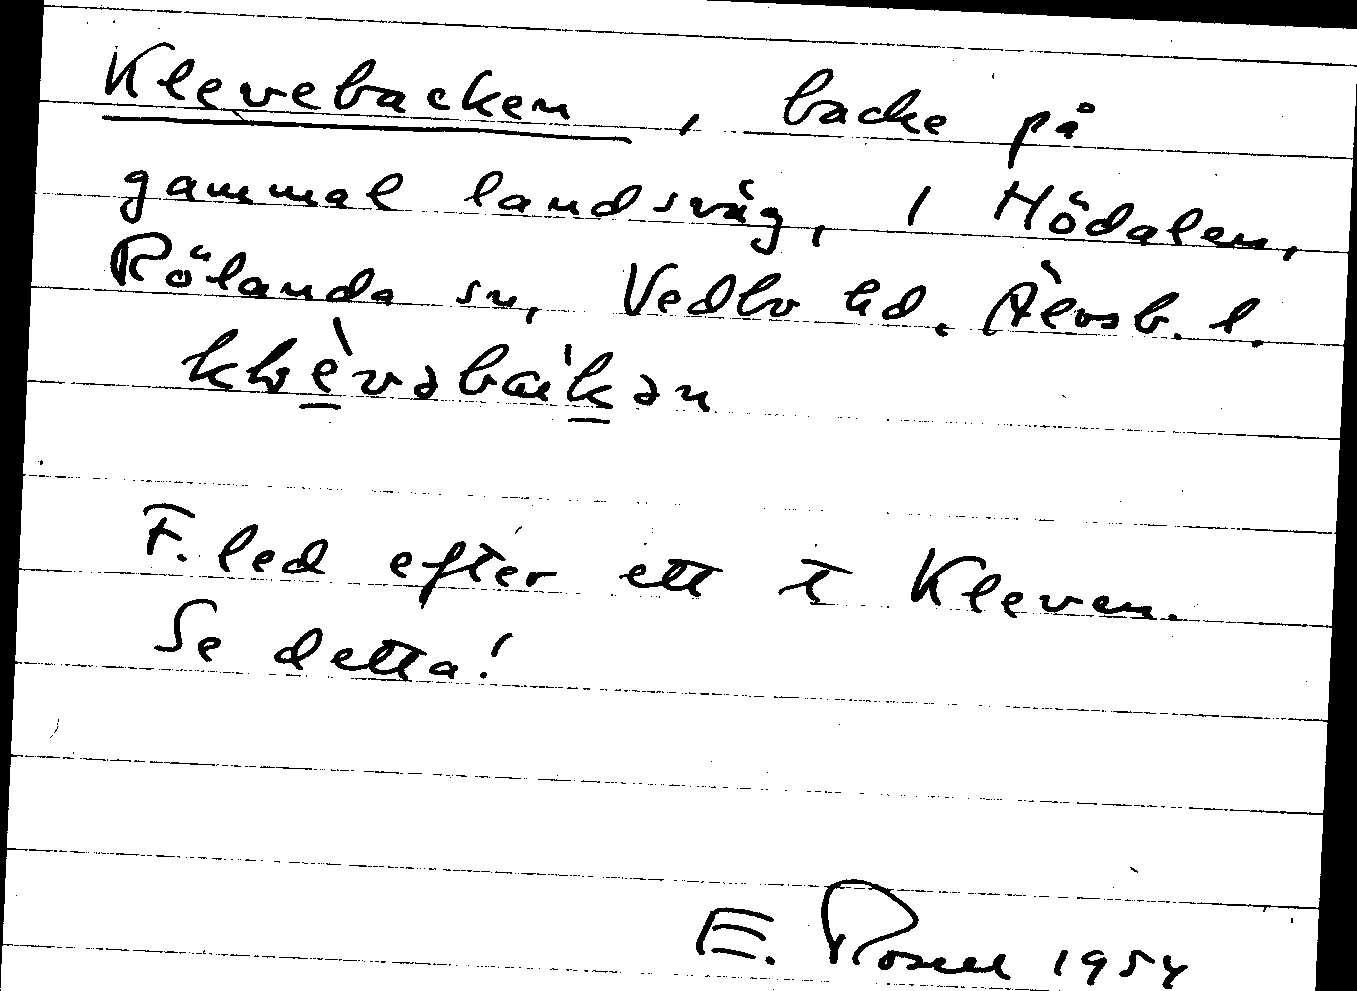 Klevebacken, backe på
gammal landsväg, i Hödalen,
Rölanda sn, Vedbo hd. Älvsb. l.
F. led efter ett t Kleven.
Se detta!
E. 1954